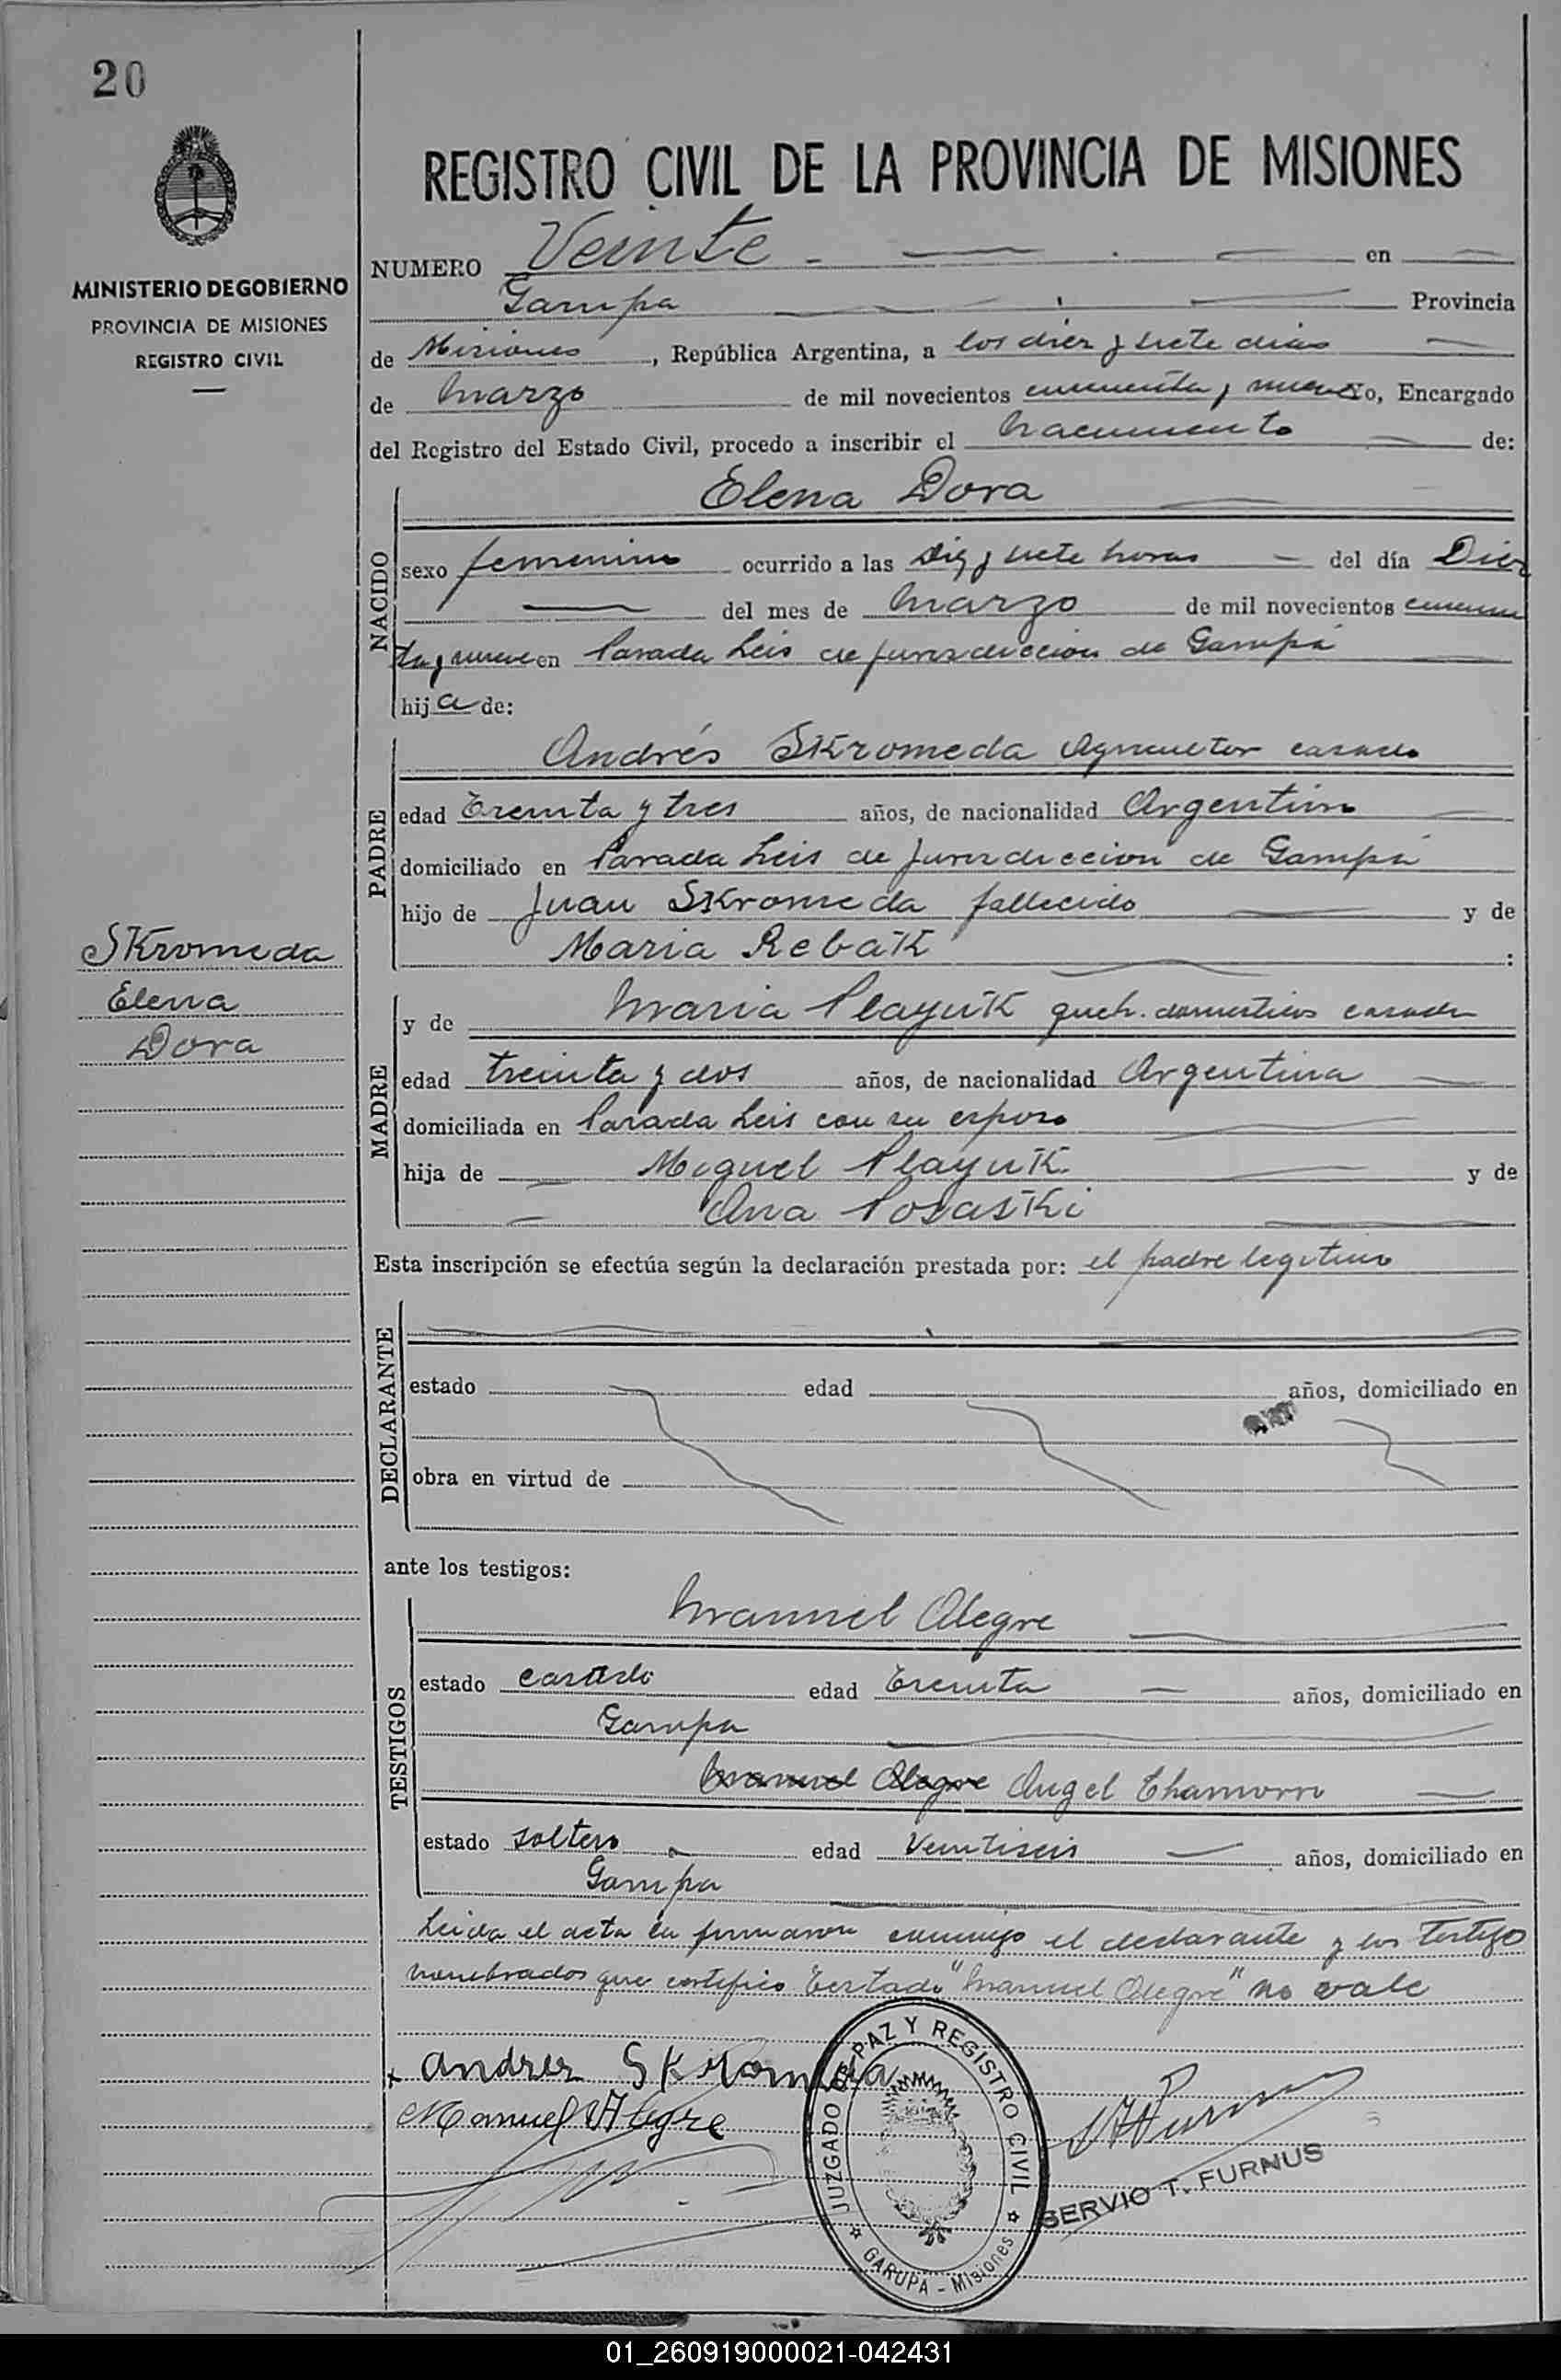 20
MINISTERIO DE GOBIERNO
PROVINCIA DE MISIONES
REGISTRO CIVIL
REGISTRO CIVIL DE LA PROVINCIA DE MISIONES
NUMERO Veinte en
Garupa Provincia
de Misiones, República Argentina, a los diez y siete dias
de Marzo de mil novecientos cincuenta y nueve yo, Encargado
del Registro del Estado Civil, procedo a inscribir el Nacimiento de:
Elena Dora
NACIDO
sexo femenino ocurrido a las Diez y siete horas del día Diez
del mes de Marzo de mil novecientos cincuen
ta y nueve en Parada Leis de jurisdiccion de Garupá
hija de:
Andrés SKromeda Agricultor casado
PADRE
edad Treinta y tres años, de nacionalidad Argentino
domiciliado en Parada Leis de jurisdiccion de Garupá
hijo de Juan SKromeda fallecido y de
Maria RebaK :
SKromeda
Elena
Dora
MADRE
y de Maria PlayuK queh. domesticos casada
edad treinta y dos años, de nacionalidad Argentina
domiciliada en Parada Leis con su esposo
hija de Miguel PlayuK y de
Ana PosasKi
Esta inscripción se efectúa según la declaración prestada por: el padre legitimo
DECLARANTE
estado edad años, domiciliado en
obra en virtud de
ante los testigos:
TESTIGOS
Manuel Alegre
estado casado edad Treinta años, domiciliado en
Garupa
Manuel Alegre Angel Chamorro
estado soltero edad Veintiseis años, domiciliado en
Garupa
Leida el acta la firmaron conmigo el declarante y los testigo
nombrados que certifico Testado "Manuel Alegre" no vale
x andres SKromeda
Manuel Alegre
JUZGADO DE PAZ Y REGISTRO CIVIL
GARUPA - Misiones
SERVIO T. FURNUS
01_260919000021-042431